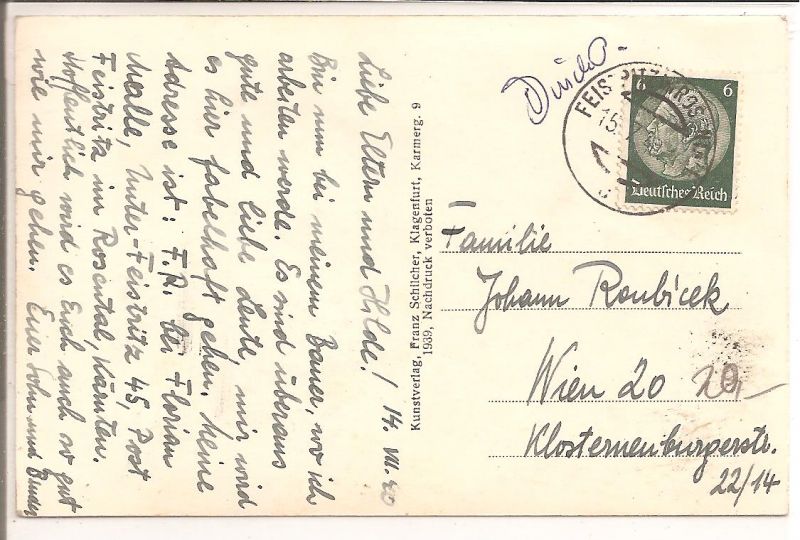 Liebe Eltern und Hilde! 14. VII. 40
Bin nun bei meinem Bauer, wo ich
arbeiten werde. Es sind überaus
gute und liebe Leute, mir wird
es hier fabelhaft gehen. Meine
Adresse ist: F.R. bei Florian
Malle, Unter-Feistritz 45, Post
Feistritz im Rosental, Kärnten.
Hoffentlich wird es Euch auch so gut
wie mir gehen. Euer Sohn und Bruder
Kunstverlag, Franz Schilcher, Klagenfurt, Karmerg. 9
1939, Nachdruck verboten
FEISTRITZ
15.
6 6
Deutsches Reich
Familie
Johann Roubicek
Wien 20 20,-
Klosterneuburgerstr.
22/14